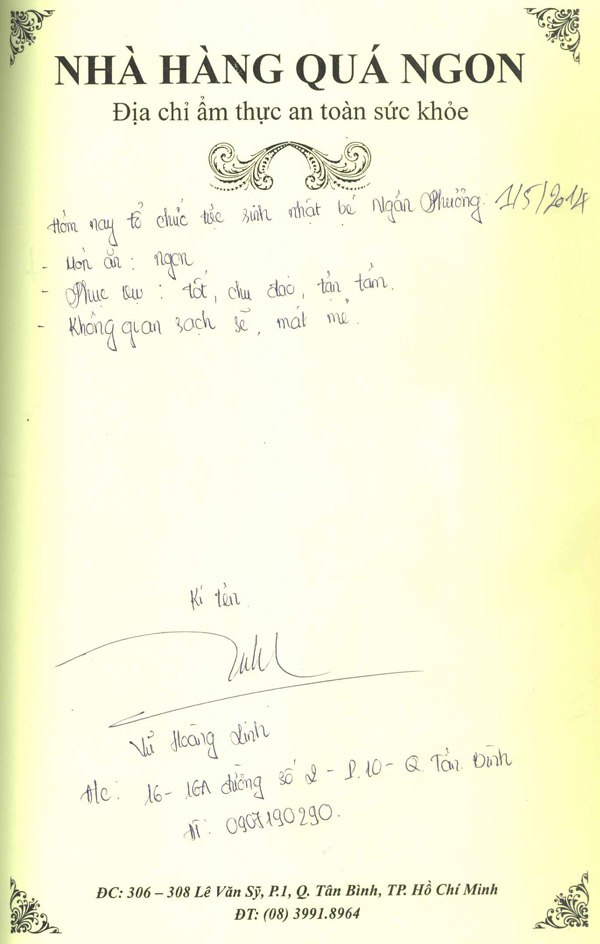 NHÀ HÀNG QUÁ NGON
Địa chỉ ẩm thực an toàn sức khỏe
Hôm nay tổ chức tiệc sinh nhật bé Ngân Phương 1/5/2014
- Món ăn: ngon
- Phục vụ: tốt, chu đáo, tận tâm.
- Không quan sạch sẽ, mát mẻ.
Kí tên
Vũ Hoàng Linh
Đ/c: 16 - 16A đường số 2 - P.10 - Q Tân Bình
ĐT: 0907190290.
ĐC: 306 – 308 Lê Văn Sỹ, P.1, Q. Tân Bình, TP. Hồ Chí Minh
ĐT: (08) 3991.8964